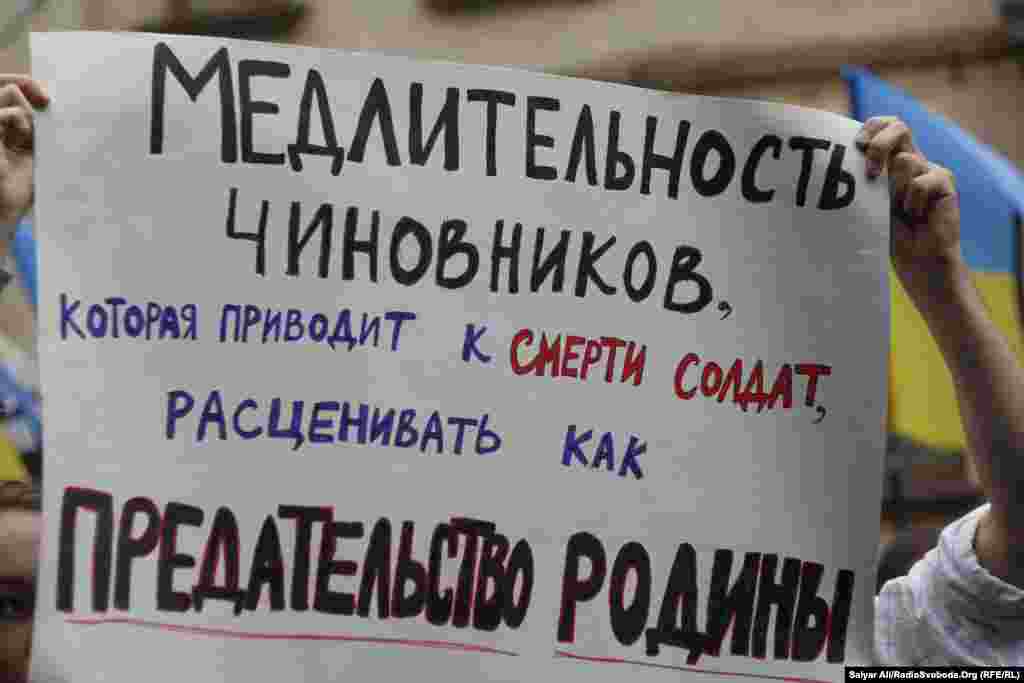 МЕДЛИТЕЛЬНОСТЬ
ЧИНОВНИКОВ,
КОТОРАЯ ПРИВОДИТ К СМЕРТИ СОЛДАТ,
РАСЦЕНИВАТЬ КАК
ПРЕДАТЕЛЬСТВО РОДИНЫ
Salyar Ali/RadioSvoboda.Org (RFE/RL)